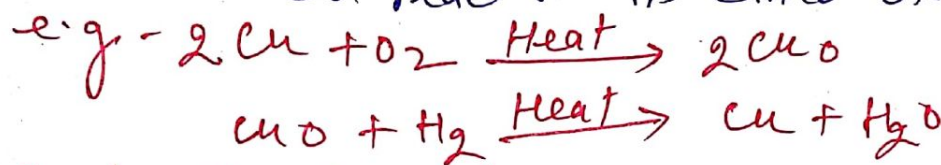 e.g - 2Cu + O2 Heat→ 2CuO
CuO + H2 Heat→ Cu + H2O